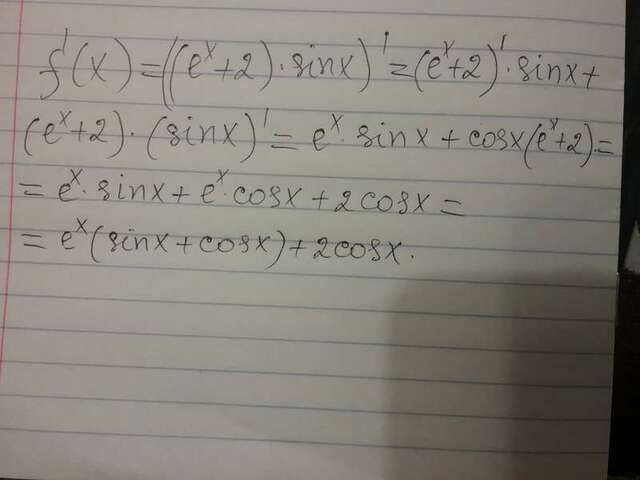 f'(x) = ((eˣ+2)·sinx)' = (eˣ+2)'·sinx+
(eˣ+2)·(sinx)' = eˣ·sinx + cosx(eˣ+2) =
= eˣ·sinx + eˣ·cosx + 2cosx =
= eˣ(sinx + cosx) + 2cosx.